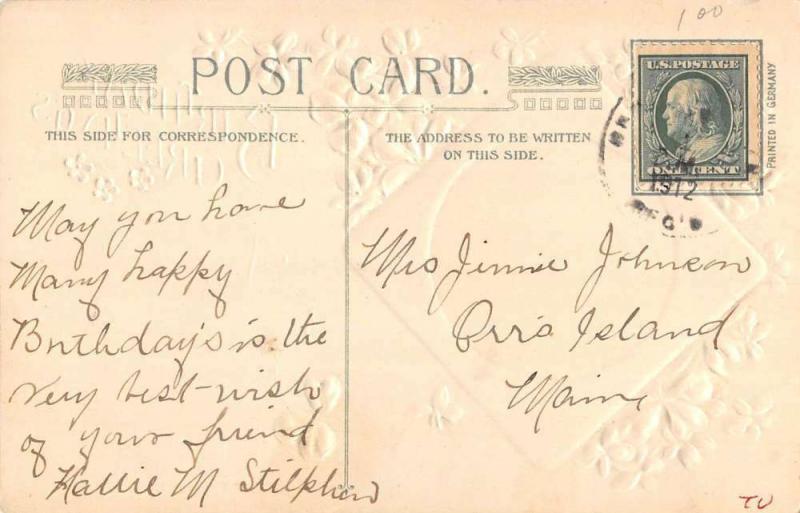 1 00
POST CARD.
U.S. POSTAGE
ONE CENT
PRINTED IN GERMANY
1912
REC'D
THIS SIDE FOR CORRESPONDENCE.
THE ADDRESS TO BE WRITTEN
ON THIS SIDE.
May you have
Many happy
Birthday's is the
Very best wish
of your friend
Hattie M Stilphen
Mrs Jinnie Johnson
Orrs Island
Maine
TU